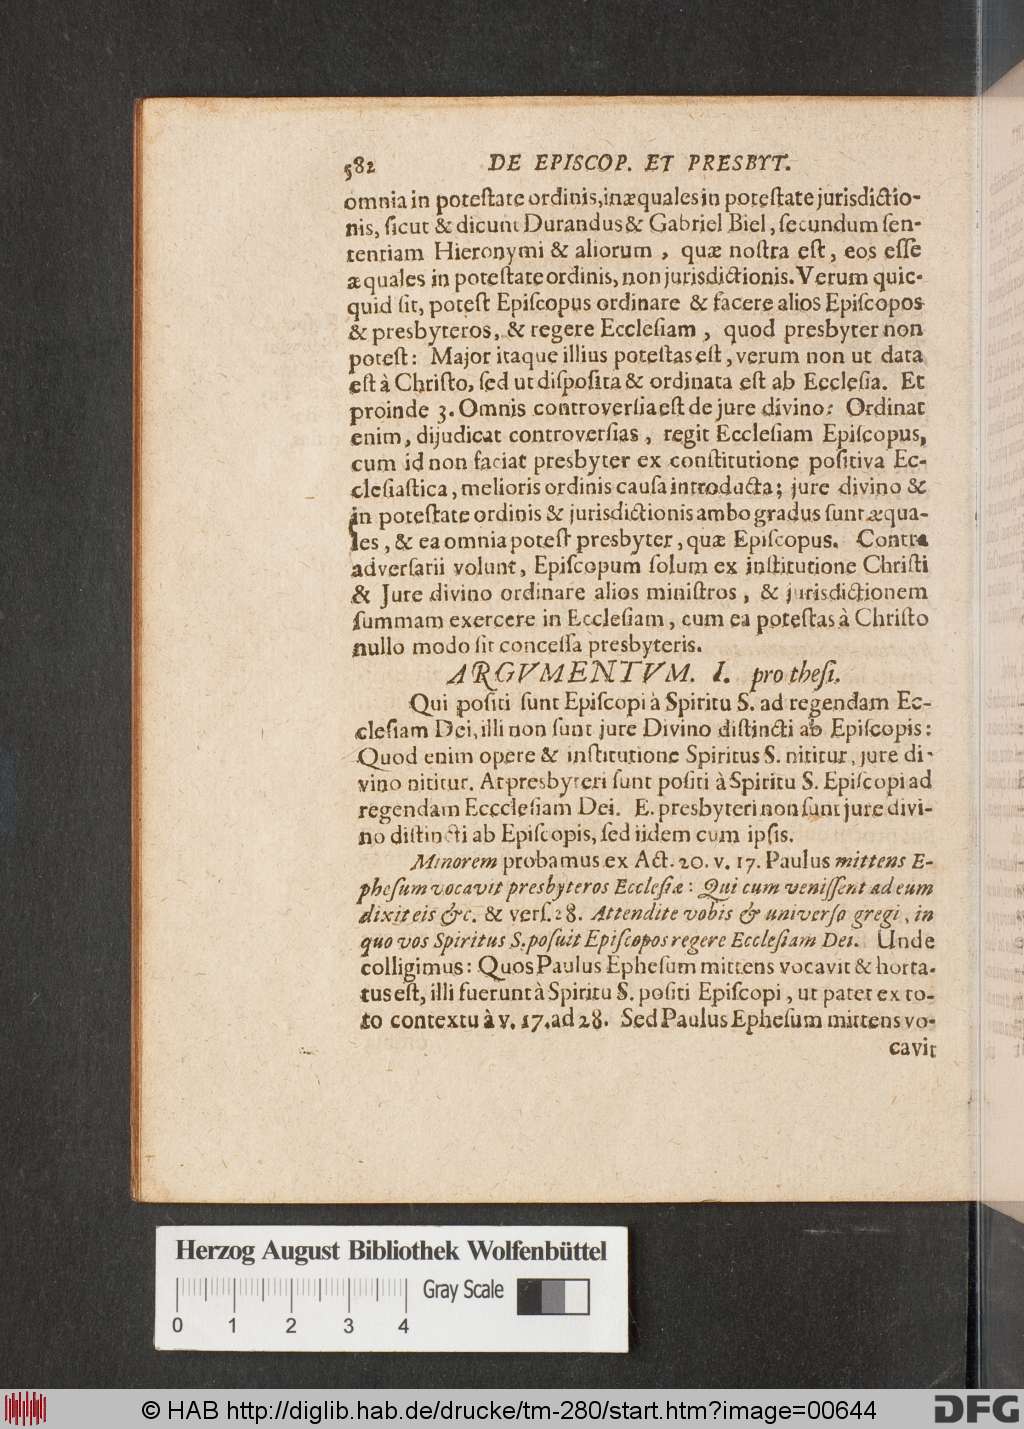 582 DE EPISCOP. ET PRESBYT.
omnia in poteſtate ordinis, inæquales in poteſtate jurisdictio-
nis, ſicut & dicunt Durandus & Gabriel Biel, ſecundum ſen-
tentiam Hieronymi & aliorum, quæ noſtra eſt, eos eſſe
æquales in poteſtate ordinis, non jurisdictionis. Verum quic-
quid ſit, poteſt Epiſcopus ordinare & facere alios Epiſcopos
& presbyteros, & regere Eccleſiam, quod presbyter non
poteſt: Major itaque illius poteſtas eſt, verum non ut data
eſt à Chriſto, ſed ut diſpoſita & ordinata eſt ab Eccleſia. Et
proinde 3. Omnis controverſia eſt de jure divino: Ordinat
enim, dijudicat controverſias, regit Eccleſiam Epiſcopus,
cum id non faciat presbyter ex conſtitutione poſitiva Ec-
cleſiaſtica, melioris ordinis cauſa introducta; jure divino &
in poteſtate ordinis & jurisdictionis ambo gradus ſunt æqua-
les, & ea omnia poteſt presbyter, quæ Epiſcopus. Contra
adverſarii volunt, Epiſcopum ſolum ex inſtitutione Chriſti
& Jure divino ordinare alios miniſtros, & jurisdictionem
ſummam exercere in Eccleſiam, cum ea poteſtas à Chriſto
nullo modo ſit conceſſa presbyteris.
ARGVMENTVM. I. pro theſi.
Qui poſiti ſunt Epiſcopi à Spiritu S. ad regendam Ec-
cleſiam Dei, illi non ſunt jure Divino diſtincti ab Epiſcopis:
Quod enim opere & inſtitutione Spiritus S. nititur, jure di-
vino nititur. At presbyteri ſunt poſiti à Spiritu S. Epiſcopi ad
regendam Ecccleſiam Dei. E. presbyteri non ſunt jure divi-
no diſtincti ab Epiſcopis, ſed iidem cum ipſis.
Minorem probamus ex Act. 20. v. 17. Paulus mittens E-
pheſum vocavit presbyteros Eccleſiæ: Qui cum veniſſent ad eum
dixit eis &c. & verſ. 28. Attendite vobis & univerſo gregi, in
quo vos Spiritus S. poſuit Epiſcopos regere Eccleſiam Dei. Unde
colligimus: Quos Paulus Epheſum mittens vocavit & horta-
tus eſt, illi fuerunt à Spiritu S. poſiti Epiſcopi, ut patet ex to-
to contextu à v. 17. ad 28. Sed Paulus Epheſum mittens vo-
cavit
Herzog August Bibliothek Wolfenbüttel
Gray Scale
0 1 2 3 4
© HAB http://diglib.hab.de/drucke/tm-280/start.htm?image=00644
DFG